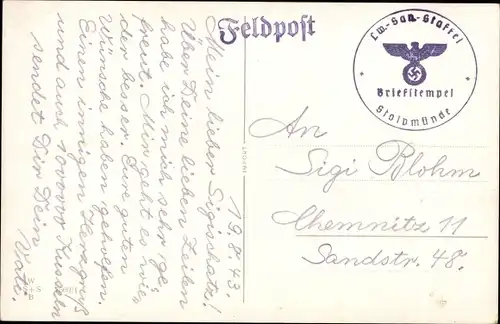 Feldpost
Lw.-San.-Staffel
Briefstempel
Stolpmünde
19.8.43.
Mein lieber Sigischatz!
Über Deine lieben Zeilen
habe ich mich sehr ge=
freut. Mir geht es wie=
der besser. Eure guten
Wünsche haben geholfen.
Einen innigen Herzgruß
und auch Küsseln
sendet Dir Dein
Vati.
An
Sigi Blohm
Chemnitz 11
Sandstr. 48.